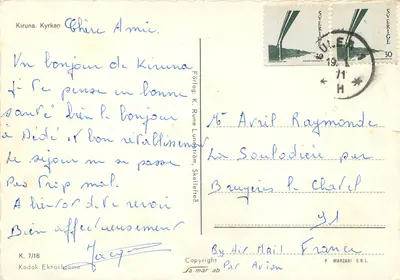 Kiruna. Kyrkan
Chère Amie.
Un bonjour de Kiruna
je pense en bonne
santé bien le bonjour
a Dédé et bon rétablissement
Le séjour ne se passe
pas trop mal.
A bientôt de te revoir
Bien affectueusement
Jacq
K. 7/16
Kodak Ektachrome
Förlag: K. Rune Lundström, Skellefteå
Copyright
sa mar ab
SVERIGE
SVERIGE
50
19
71
H
Mme Avril Raymonde
La Soulodière par
Bruyères le Chatel
91
France
By Air Mail
Par Avion